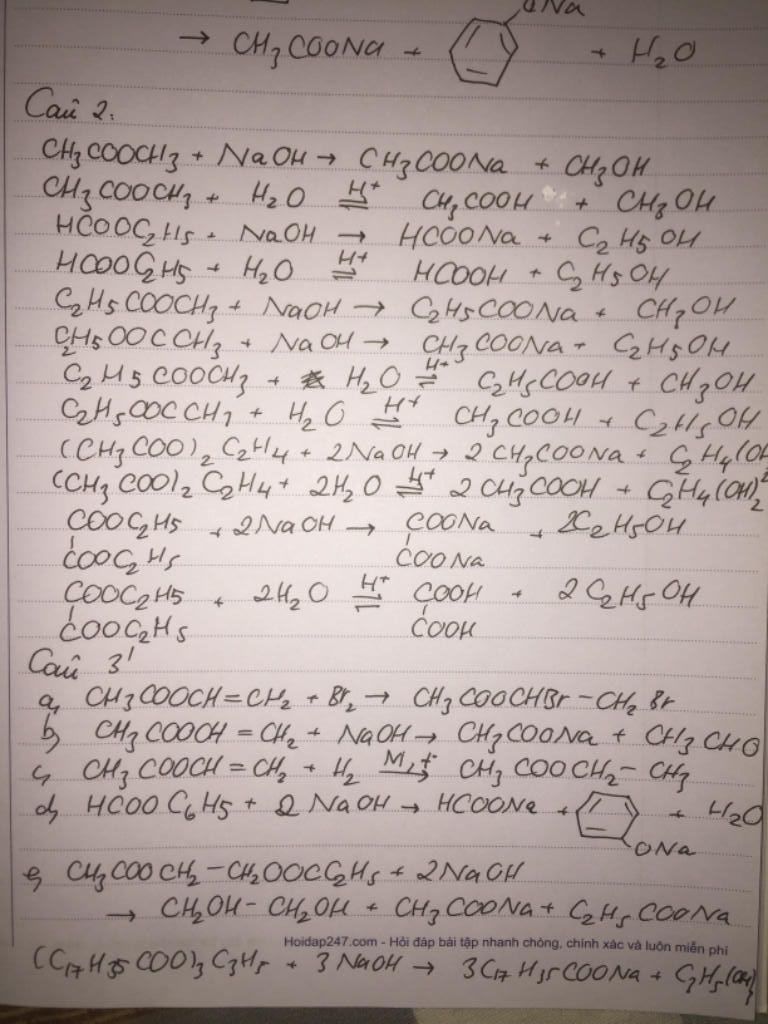 ONa
→ CH3COONa + + H2O
Câu 2:
CH3COOCH3 + NaOH → CH3COONa + CH3OH
CH3COOCH3 + H2O ⇌ H+ CH3COOH + CH3OH
HCOOC2H5 + NaOH → HCOONa + C2H5OH
HCOOC2H5 + H2O ⇌ H+ HCOOH + C2H5OH
C2H5COOCH3 + NaOH → C2H5COONa + CH3OH
C2H5OOCCH3 + NaOH → CH3COONa + C2H5OH
C2H5COOCH3 + H2O ⇌ H+ C2H5COOH + CH3OH
C2H5OOCCH3 + H2O ⇌ H+ CH3COOH + C2H5OH
(CH3COO)2C2H4 + 2NaOH → 2CH3COONa + C2H4(OH
(CH3COO)2C2H4 + 2H2O ⇌ H+ 2CH3COOH + C2H4(OH)2
COOC2H5 + 2NaOH → COONa + 2C2H5OH
COOC2H5 COONa
COOC2H5 + 2H2O ⇌ H+ COOH + 2C2H5OH
COOC2H5 COOH
Câu 3'
a, CH3COOCH=CH2 + Br2 → CH3COOCHBr-CH2Br
b, CH3COOCH=CH2 + NaOH → CH3COONa + CH3CHO
c, CH3COOCH=CH2 + H2 Ni,t° → CH3COOCH2-CH3
d, HCOOC6H5 + 2NaOH → HCOONa + + H2O
ONa
e, CH3COOCH2-CH2OOCC2H5 + 2NaOH
→ CH2OH-CH2OH + CH3COONa + C2H5COONa
Hoidap247.com - Hỏi đáp bài tập nhanh chóng, chính xác và luôn miễn phí
(C17H35COO)3C3H5 + 3NaOH → 3C17H35COONa + C3H5(OH)3